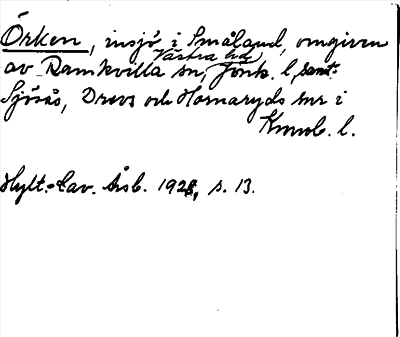 Örken, insjö i Småland, omgiven
Västra hd
av Ramkvilla sn, Jönk. l, samt
Sjösås, Drevs och Hornaryds snr i
Kronob. l.
Hylt.-Cav. Årsb. 1928, s. 13.